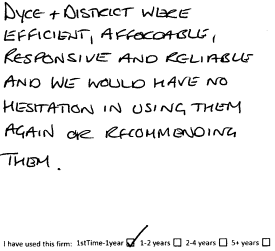 DYCE + DISTRICT WERE
EFFICIENT, AFFORDABLE,
RESPONSIVE AND RELIABLE
AND WE WOULD HAVE NO
HESITATION IN USING THEM
AGAIN OR RECOMMENDING
THEM.
I have used this firm: 1stTime-1year ☑ 1-2 years ☐ 2-4 years ☐ 5+ years ☐